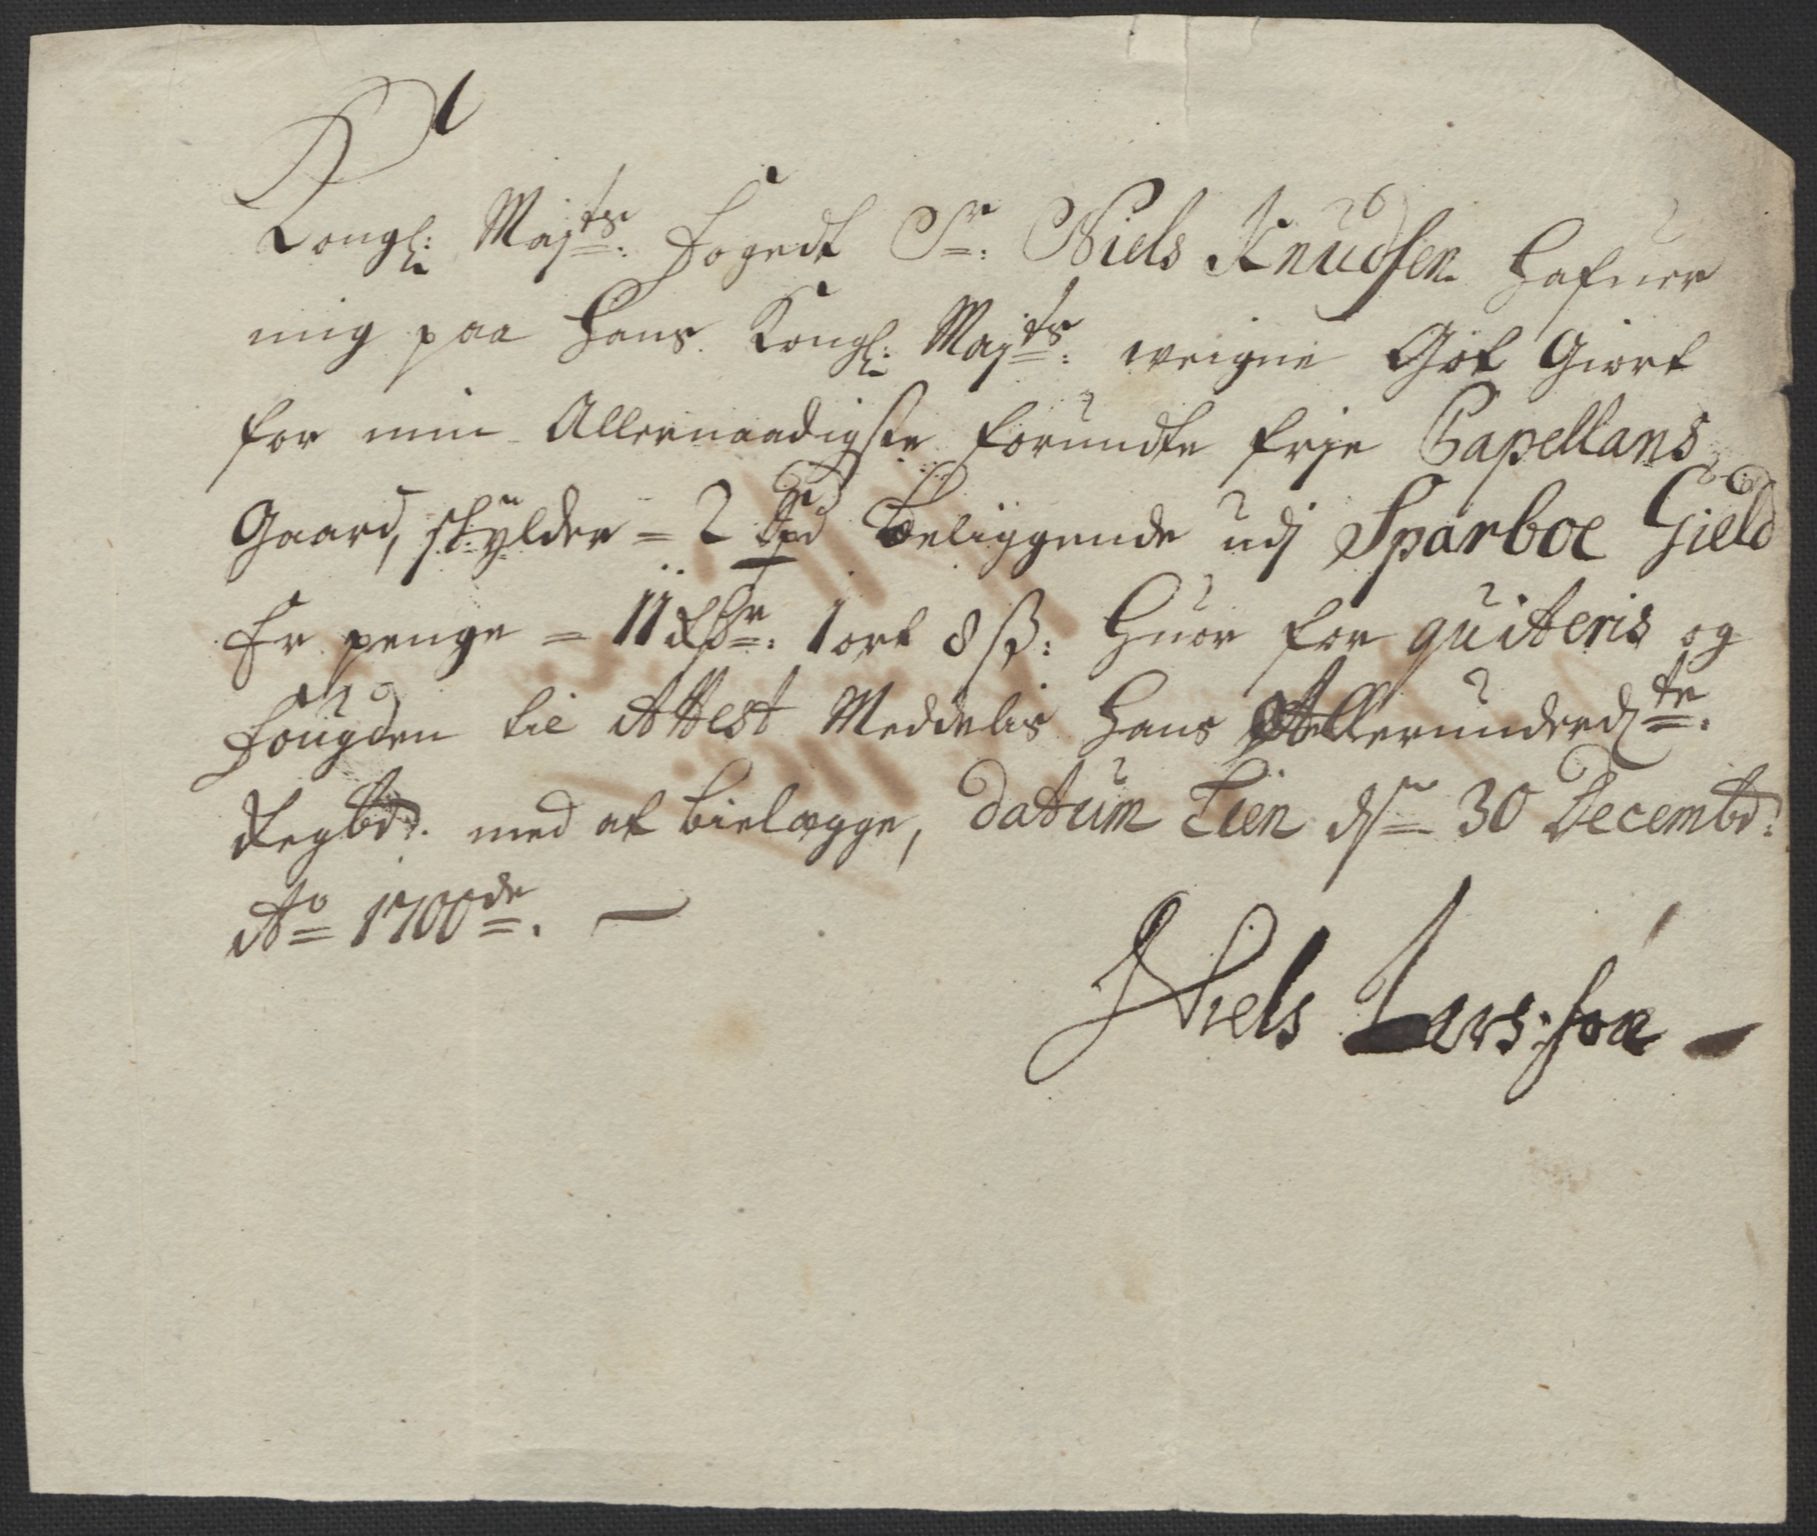 Kongl: Maj:ts: fogedt Sr: Niels Knudsen hafuer
mig paa hans Kongl: Maj:ts: weigne Got Giort
for min Allernaadigste forundte frje Capellans
Gaard, skylder = 2 Spd beliggende udj Sparboe Gield
Er penge = 11 Rdr: 1 ort 8 ß: Huor for quiteris og
fougden til Attest Meddelis hans Allerunderd:te:
Regbd: med at bielægge, datum Lien d 30 Decembr:
Ao 1700de. —
Niels Lars:søn —